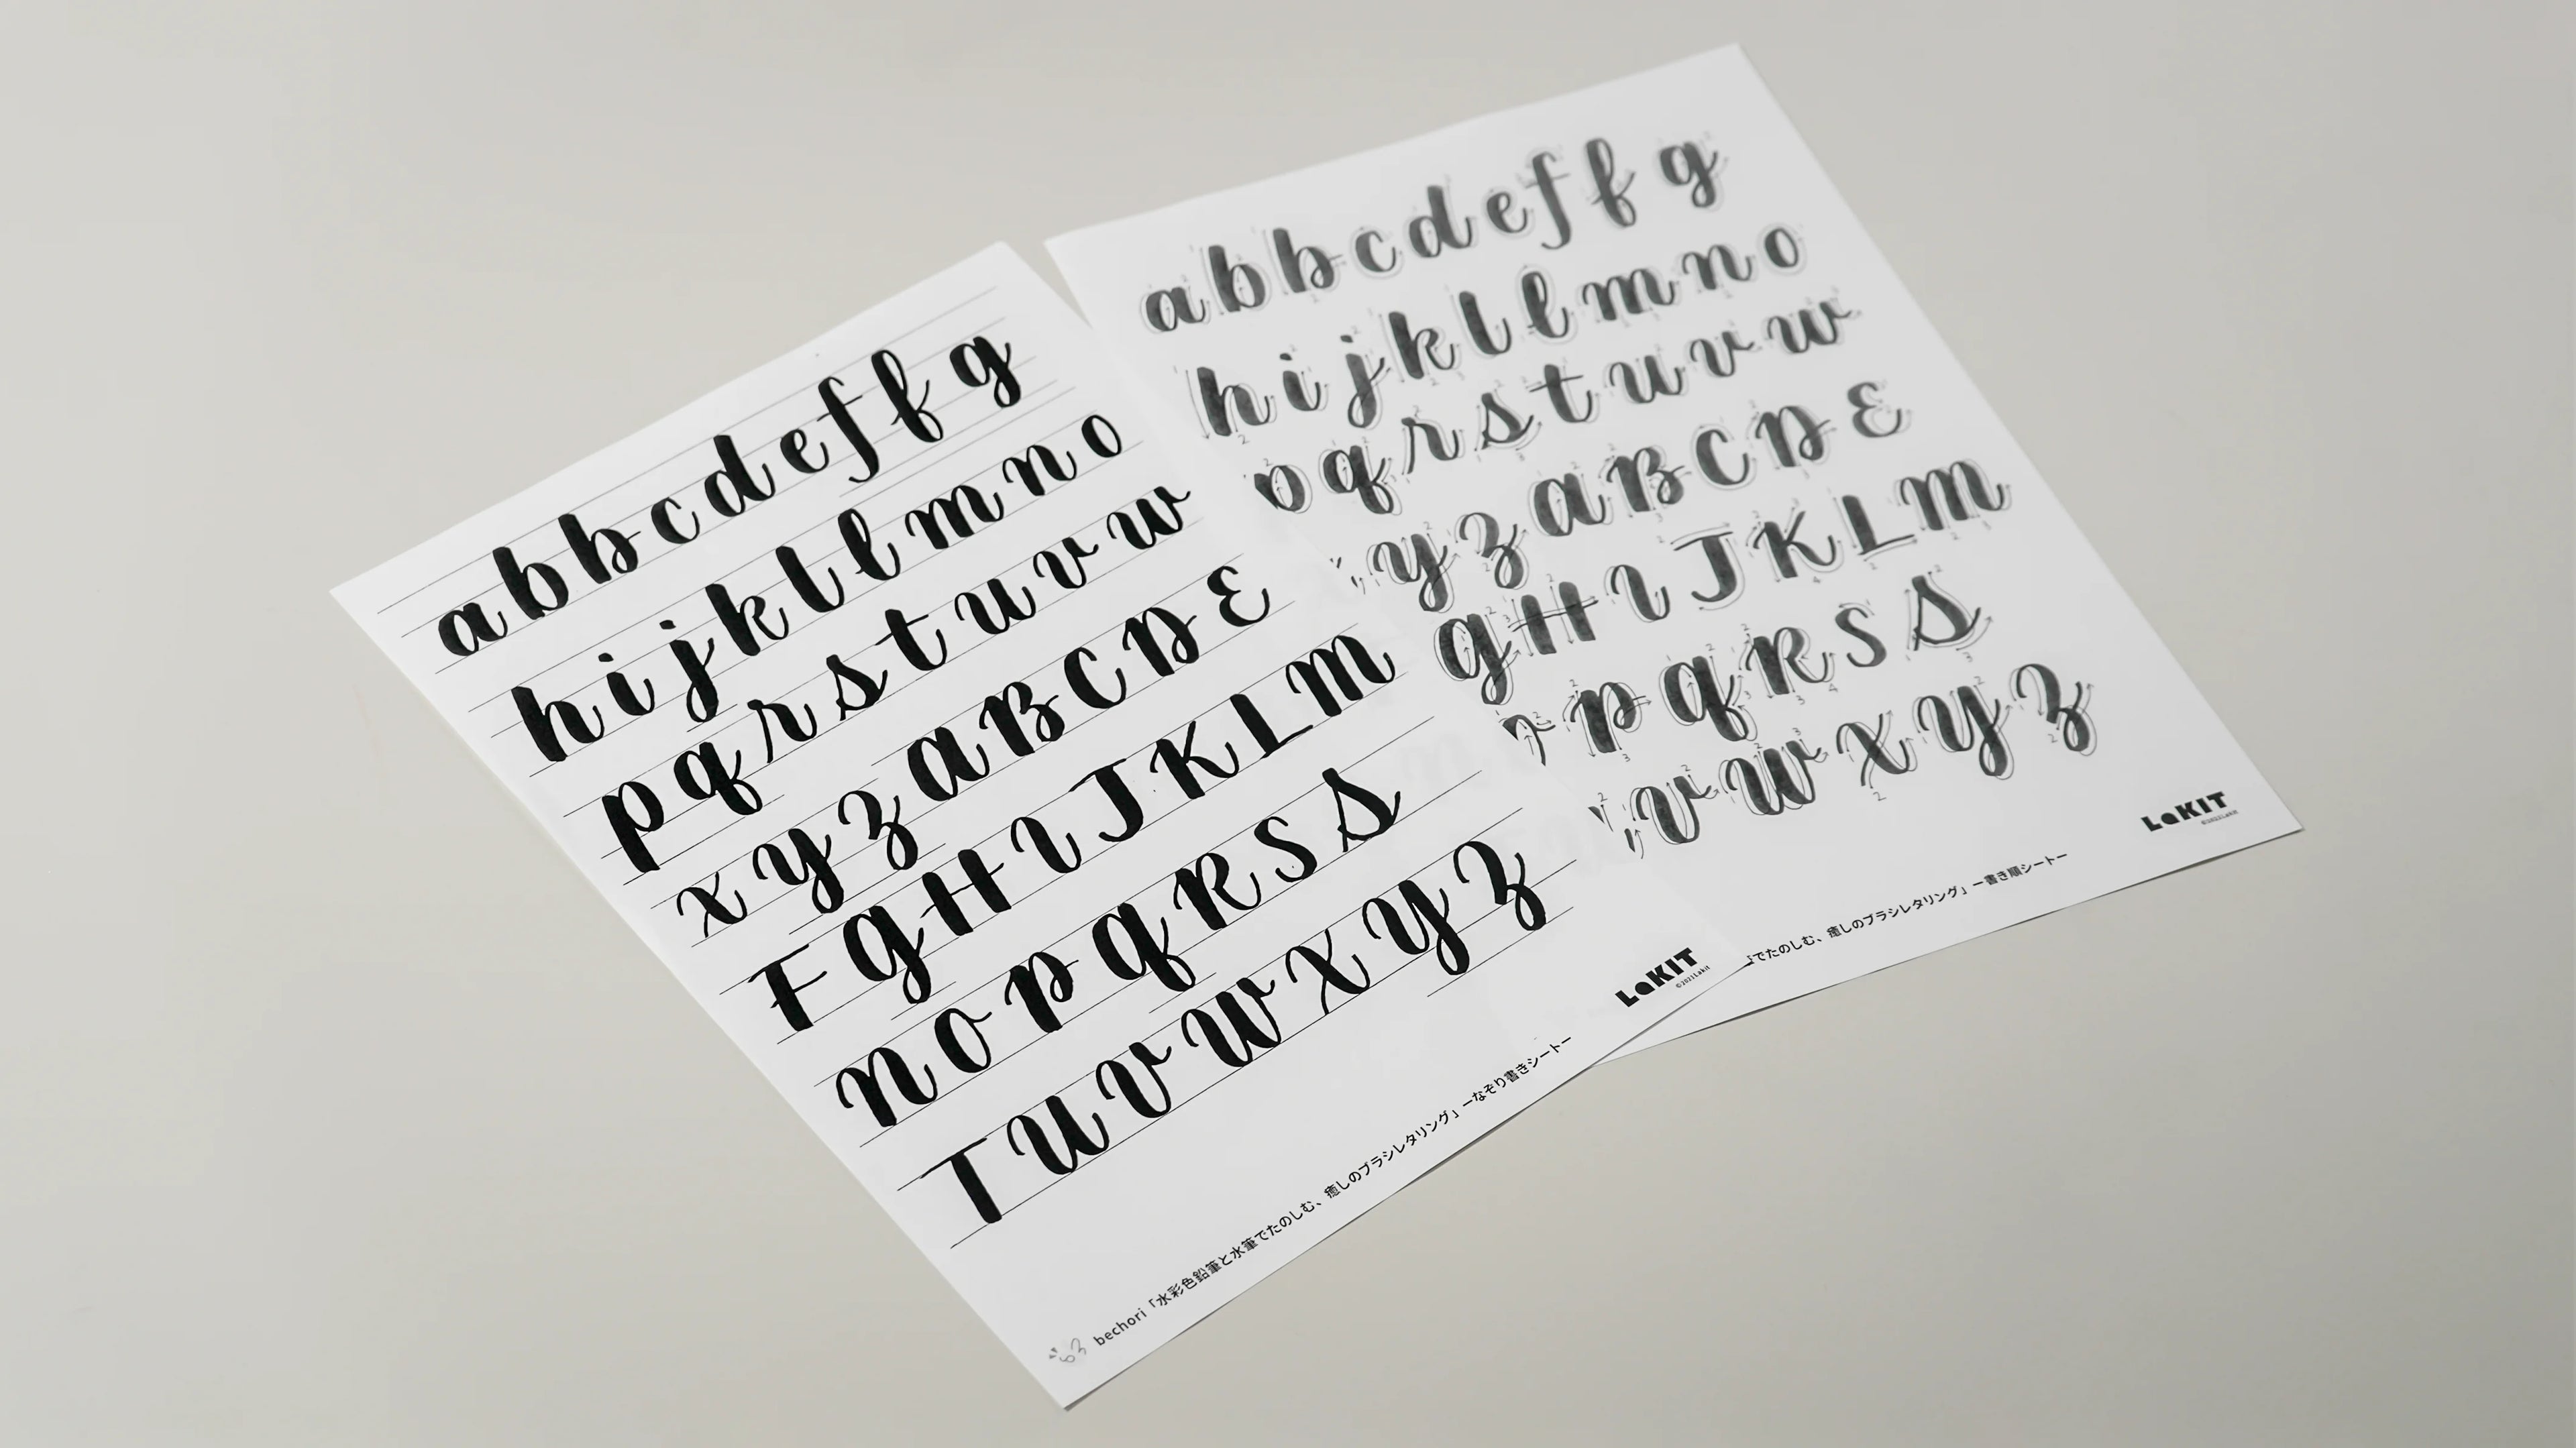 a b b c d e f f g
h i j k l l m n o
p q r s t u v w
x y z a B C D E
F g H I J K L M
N O P Q R S S
T U V W X Y Z
LaKIT
©2021LaKit
bechori「水彩色鉛筆と水筆でたのしむ、癒しのブラシレタリング」ーなぞり書きシートー
a b b c d e f f g
h i j k l l m n o
p q r s t u v w
y z a B C D E
g H I J K L M
P Q R S S
V W X Y Z
LaKIT
でたのしむ、癒しのブラシレタリング」ー書き順シートー